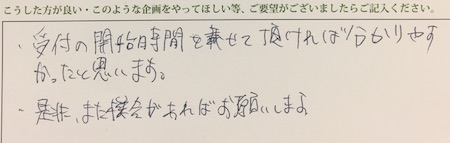 こうした方が良い・このような企画をやってほしい等、ご要望がございましたらご記入ください。
・受付の開始時間を載せて頂ければ分かりやす
かったと思います。
・是非、また機会があればお願いします